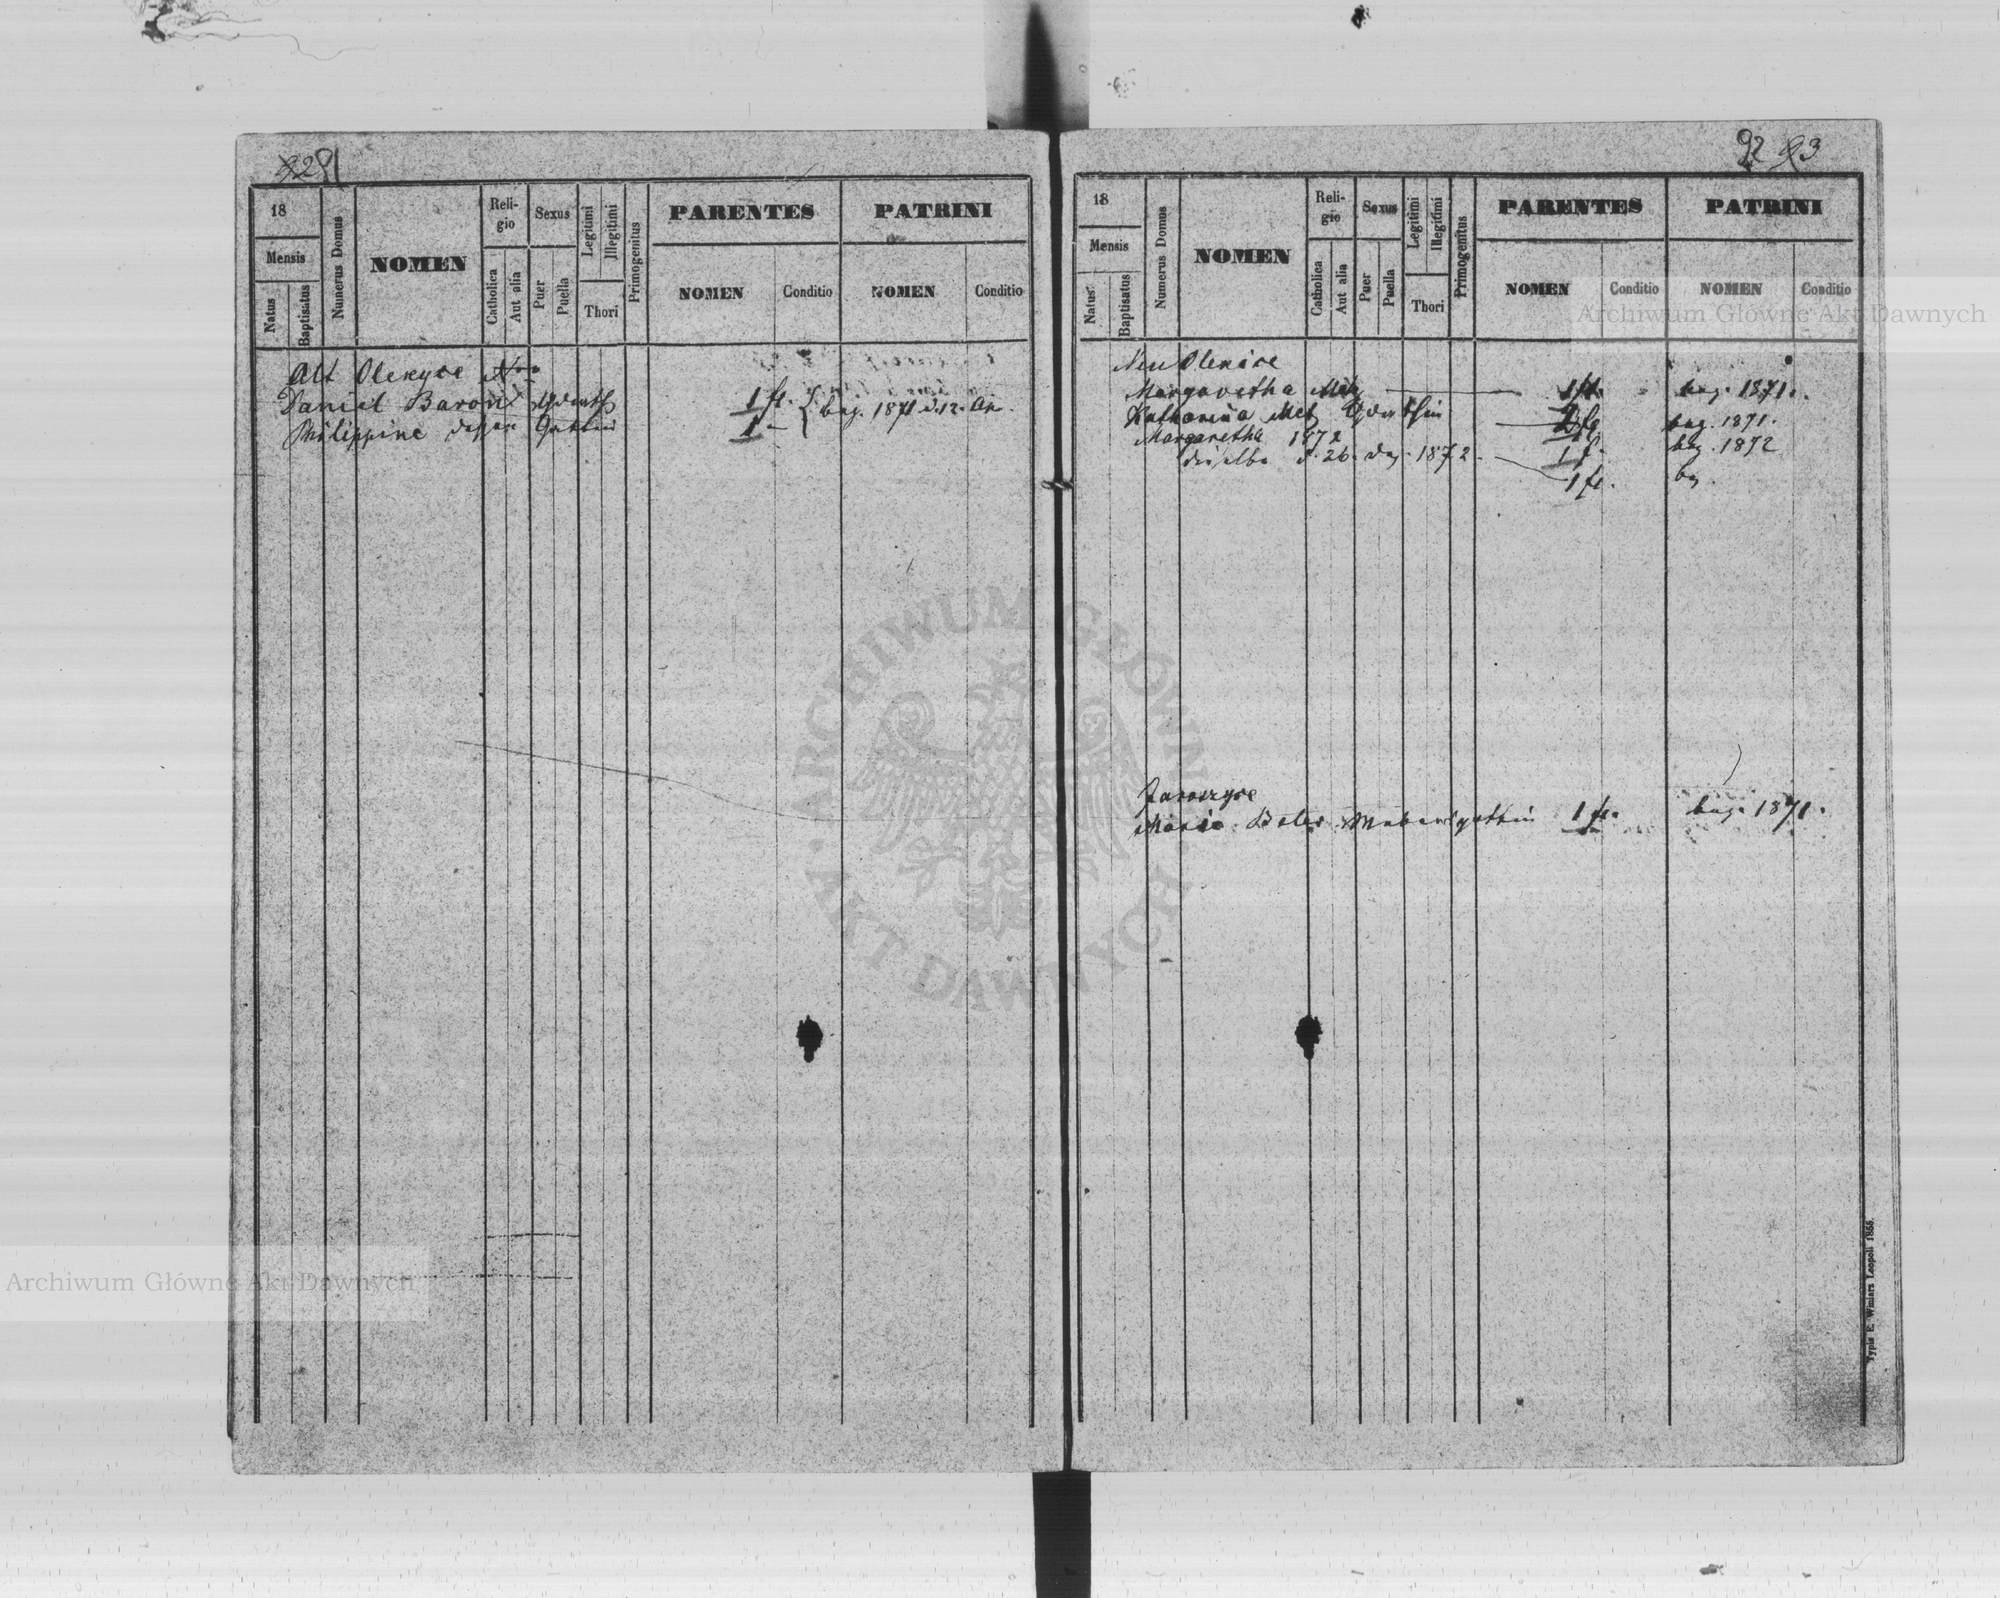 91
18
Mensis
Natus
Baptisatus
Numerus Domus
NOMEN
Reli-
gio
Catholica
Aut alia
Sexus
Puer
Puella
Legitimi
Illegitimi
Thori
Primogenitus
PARENTES
NOMEN
Conditio
PATRINI
NOMEN
Conditio
Alt Olexyce
Daniel Baron 1 fl.
Philippine dessen Gattin 1 -
bez. 1871 d. 12.
92 93
18
Mensis
Natus
Baptisatus
Numerus Domus
NOMEN
Reli-
gio
Catholica
Aut alia
Sexus
Puer
Puella
Legitimi
Illegitimi
Thori
Primogenitus
PARENTES
NOMEN
Conditio
PATRINI
NOMEN
Conditio
Neu Olexice
Margaretha 1 fl. bez. 1871.
Katharina Metz bez. 1871.
Margaretha 1872 1 f. bez. 1872
dieselbe d. 26. 1872. 1 fl. bez.
Maria 1 fl. bez. 1871.
Typis E. Winiarz Leopoli 1865.
Archiwum Główne Akt Dawnych
ARCHIWUM GŁÓWNE · AKT DAWNYCH ·
Archiwum Główne Akt Dawnych